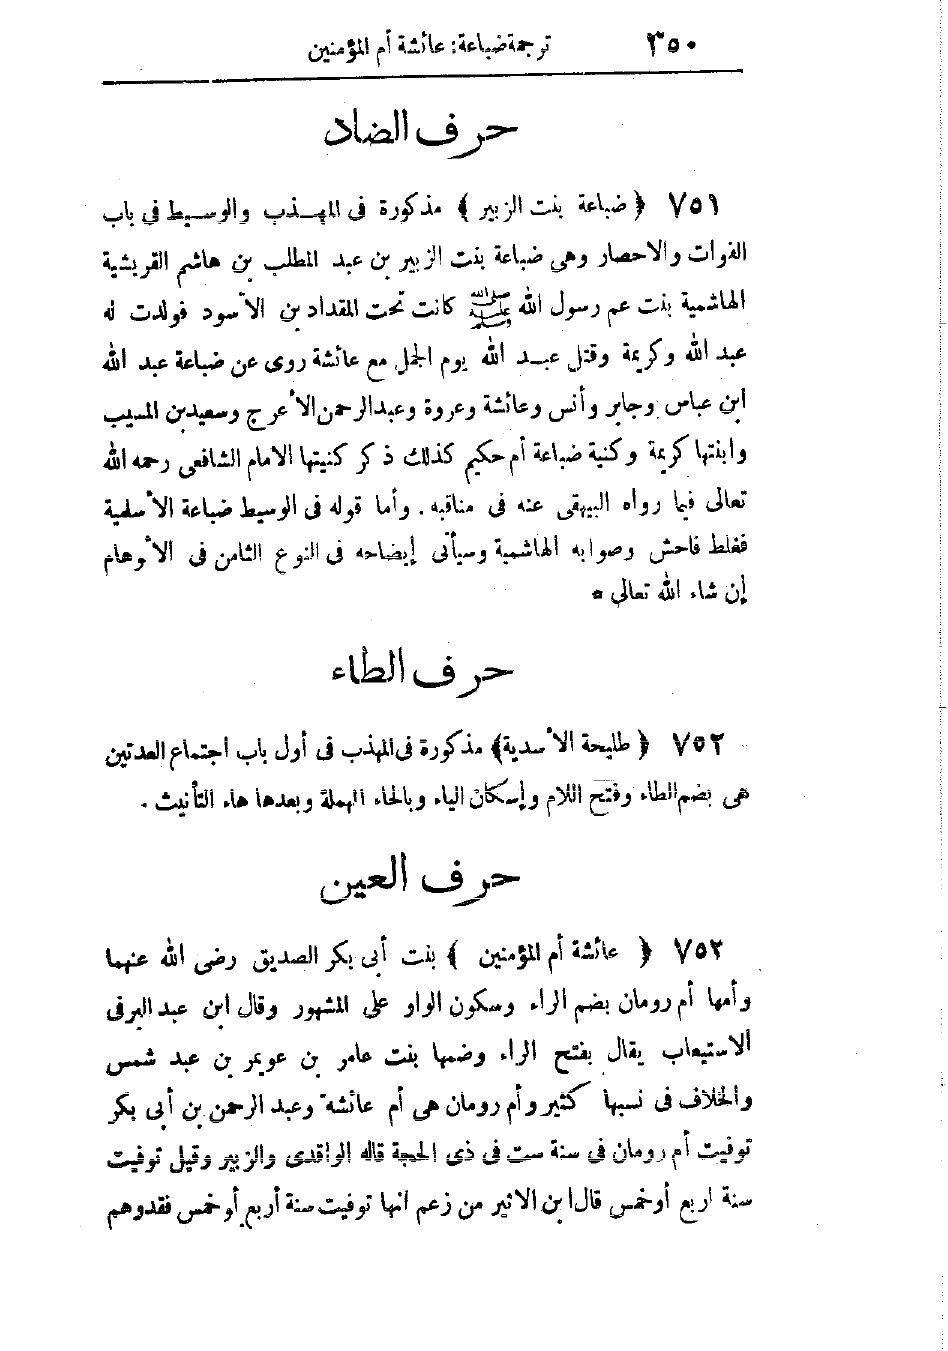 ٣٥٠ ترجمة ضباعة: عائشة أم المؤمنين
حرف الضاد
٧٥١ ﴿ ضباعة بنت الزبير ﴾ مذكورة فى المهـذب والوسـيط فى باب
الفوات والاحصار وهى ضباعة بنت الزبير بن عبد المطلب بن هاشم القريشية
الهاشمية بنت عم رسول الله ﷺ كانت تحت المقداد بن الأسود فولدت له
عبد الله وكريمة وقتل عبـد الله يوم الجمل مع عائشة روى عن ضباعة عبد الله
ابن عباس وجابر وأنس وعائشة وعروة وعبدالرحمن الأعرج وسعيد بن المسيب
وابنتها كريمة وكنية ضباعة أم حكيم كذلك ذكر كنيتها الامام الشافعى رحمه الله
تعالى فيما رواه البيهقى عنه فى مناقبه. وأما قوله فى الوسيط ضباعة الأسلمية
فغلط فاحش وصوابه الهاشمية وسيأتى إيضاحه فى النوع الثامن فى الأوهام
إن شاء الله تعالى *
حرف الطاء
٧٥٢ ﴿ طليحة الأسدية﴾ مذكورة فى المهذب فى أول باب اجتماع العدتين
هى بضم الطاء وفتح اللام وإسكان الياء وبالحاء المهملة وبعدها هاء التأنيث.
حرف العين
٧٥٢ ﴿ عائشة أم المؤمنين ﴾ بنت أبى بكر الصديق رضى الله عنهما
وأمها أم رومان بضم الراء وسكون الواو على المشهور وقال ابن عبد البر فى
الاستيعاب يقال بفتح الراء وضمها بنت عامر بن عويمر بن عبد شمس
والخلاف فى نسبها كثير وأم رومان هى أم عائشة وعبد الرحمن بن أبى بكر
توفيت أم رومان فى سنة ست فى ذى الحجة قاله الواقدى والزبير وقيل توفيت
سنة اربع أو خمس قال ابن الاثير من زعم انها توفيت سنة أربع أو خمس فقد وهم